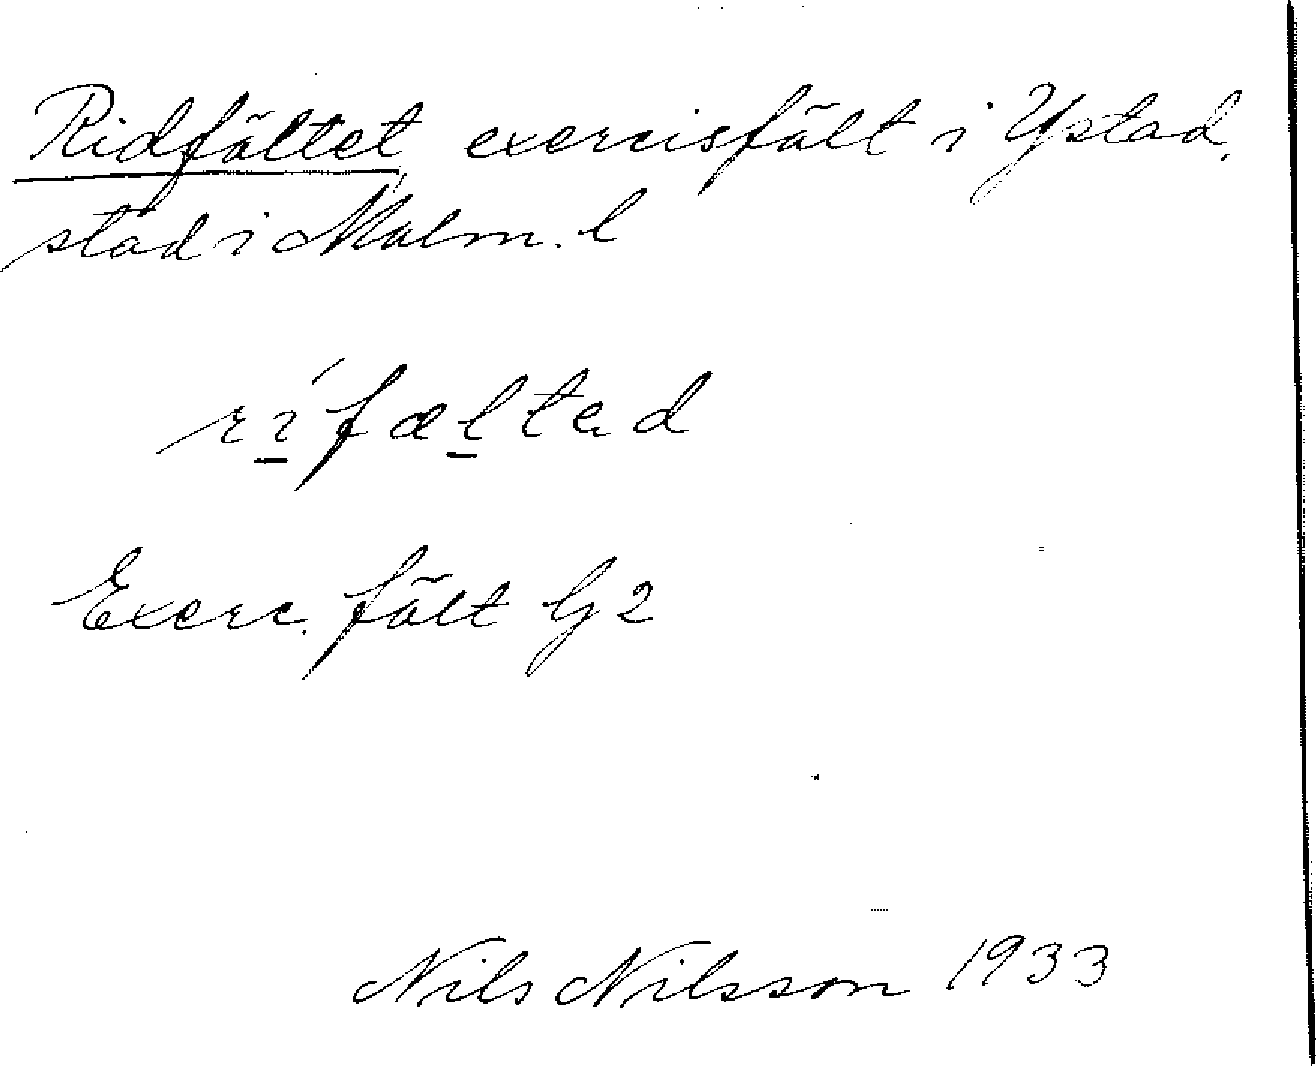 Ridfältet, exercisfält i Ystad,
stad i Malm. l
rífæltad
Exerc. fält G 2
Nils Nilsson 1933